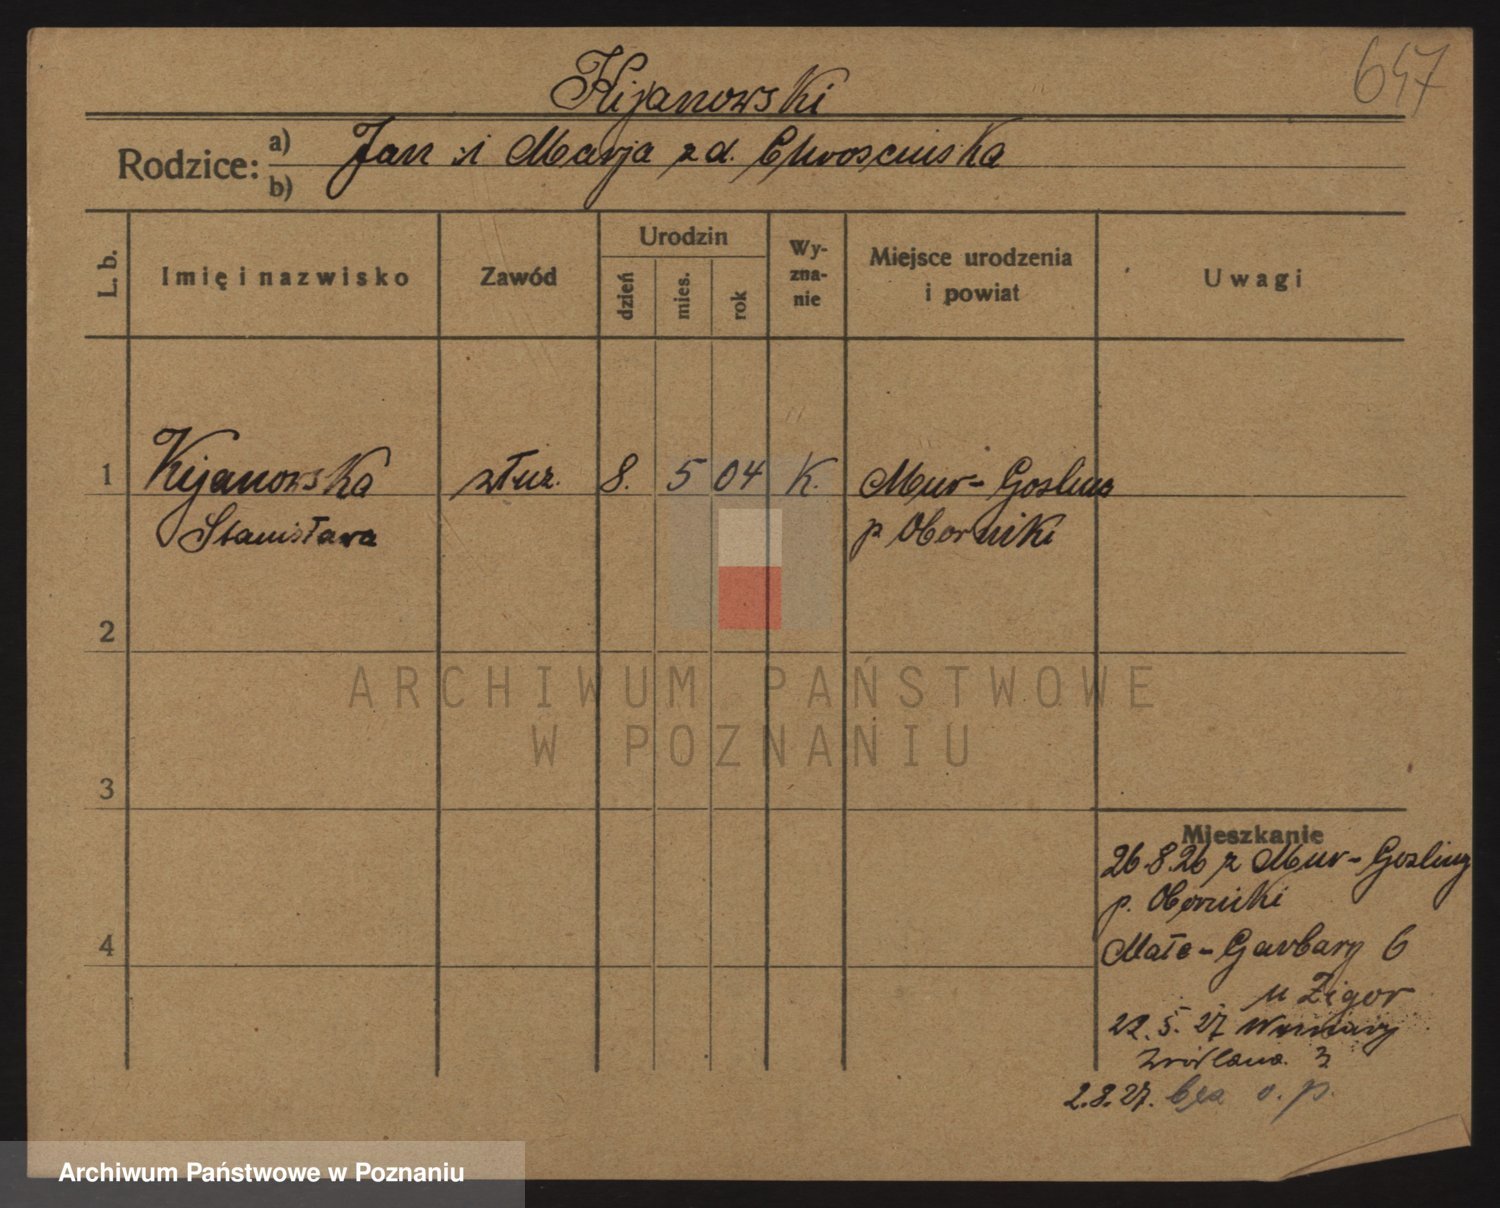 647
Kijanowski
Rodzice: a) Jan i Marja z d. Chrościńska
b)
L. b. Imię i nazwisko Zawód Urodzin dzień mies. rok Wy-zna-nie Miejsce urodzenia i powiat Uwagi
1 Kijanowska służ. 8. 5 04 K. Mur-Goslina
Stanisława p. Oborniki
2
ARCHIWUM PAŃSTWOWE
W POZNANIU
3
Mieszkanie
26.8.26 z Mur-Gosliny
p. Oborniki
4
Małe-Garbary 6
u Zigor
22.5.27 Winiary
Źródlana 3
2.8.27. bez o. p.
Archiwum Państwowe w Poznaniu